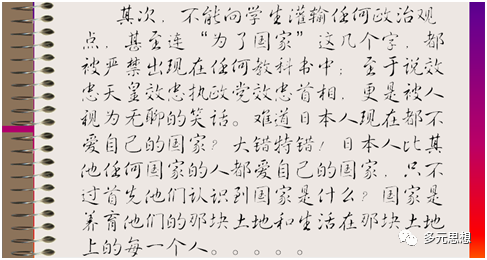 其次，不能向学生灌输任何政治观
点，甚至连“为了国家”这几个字，都
被严禁出现在任何教科书中；至于说效
忠天皇效忠执政党效忠首相，更是被人
视为无聊的笑话。难道日本人现在都不
爱自己的国家？大错特错！日本人比其
他任何国家的人都爱自己的国家，只不
过首先他们认识到国家是什么？国家是
养育他们的那块土地和生活在那块土地
上的每一个人。。。。。
多元思想